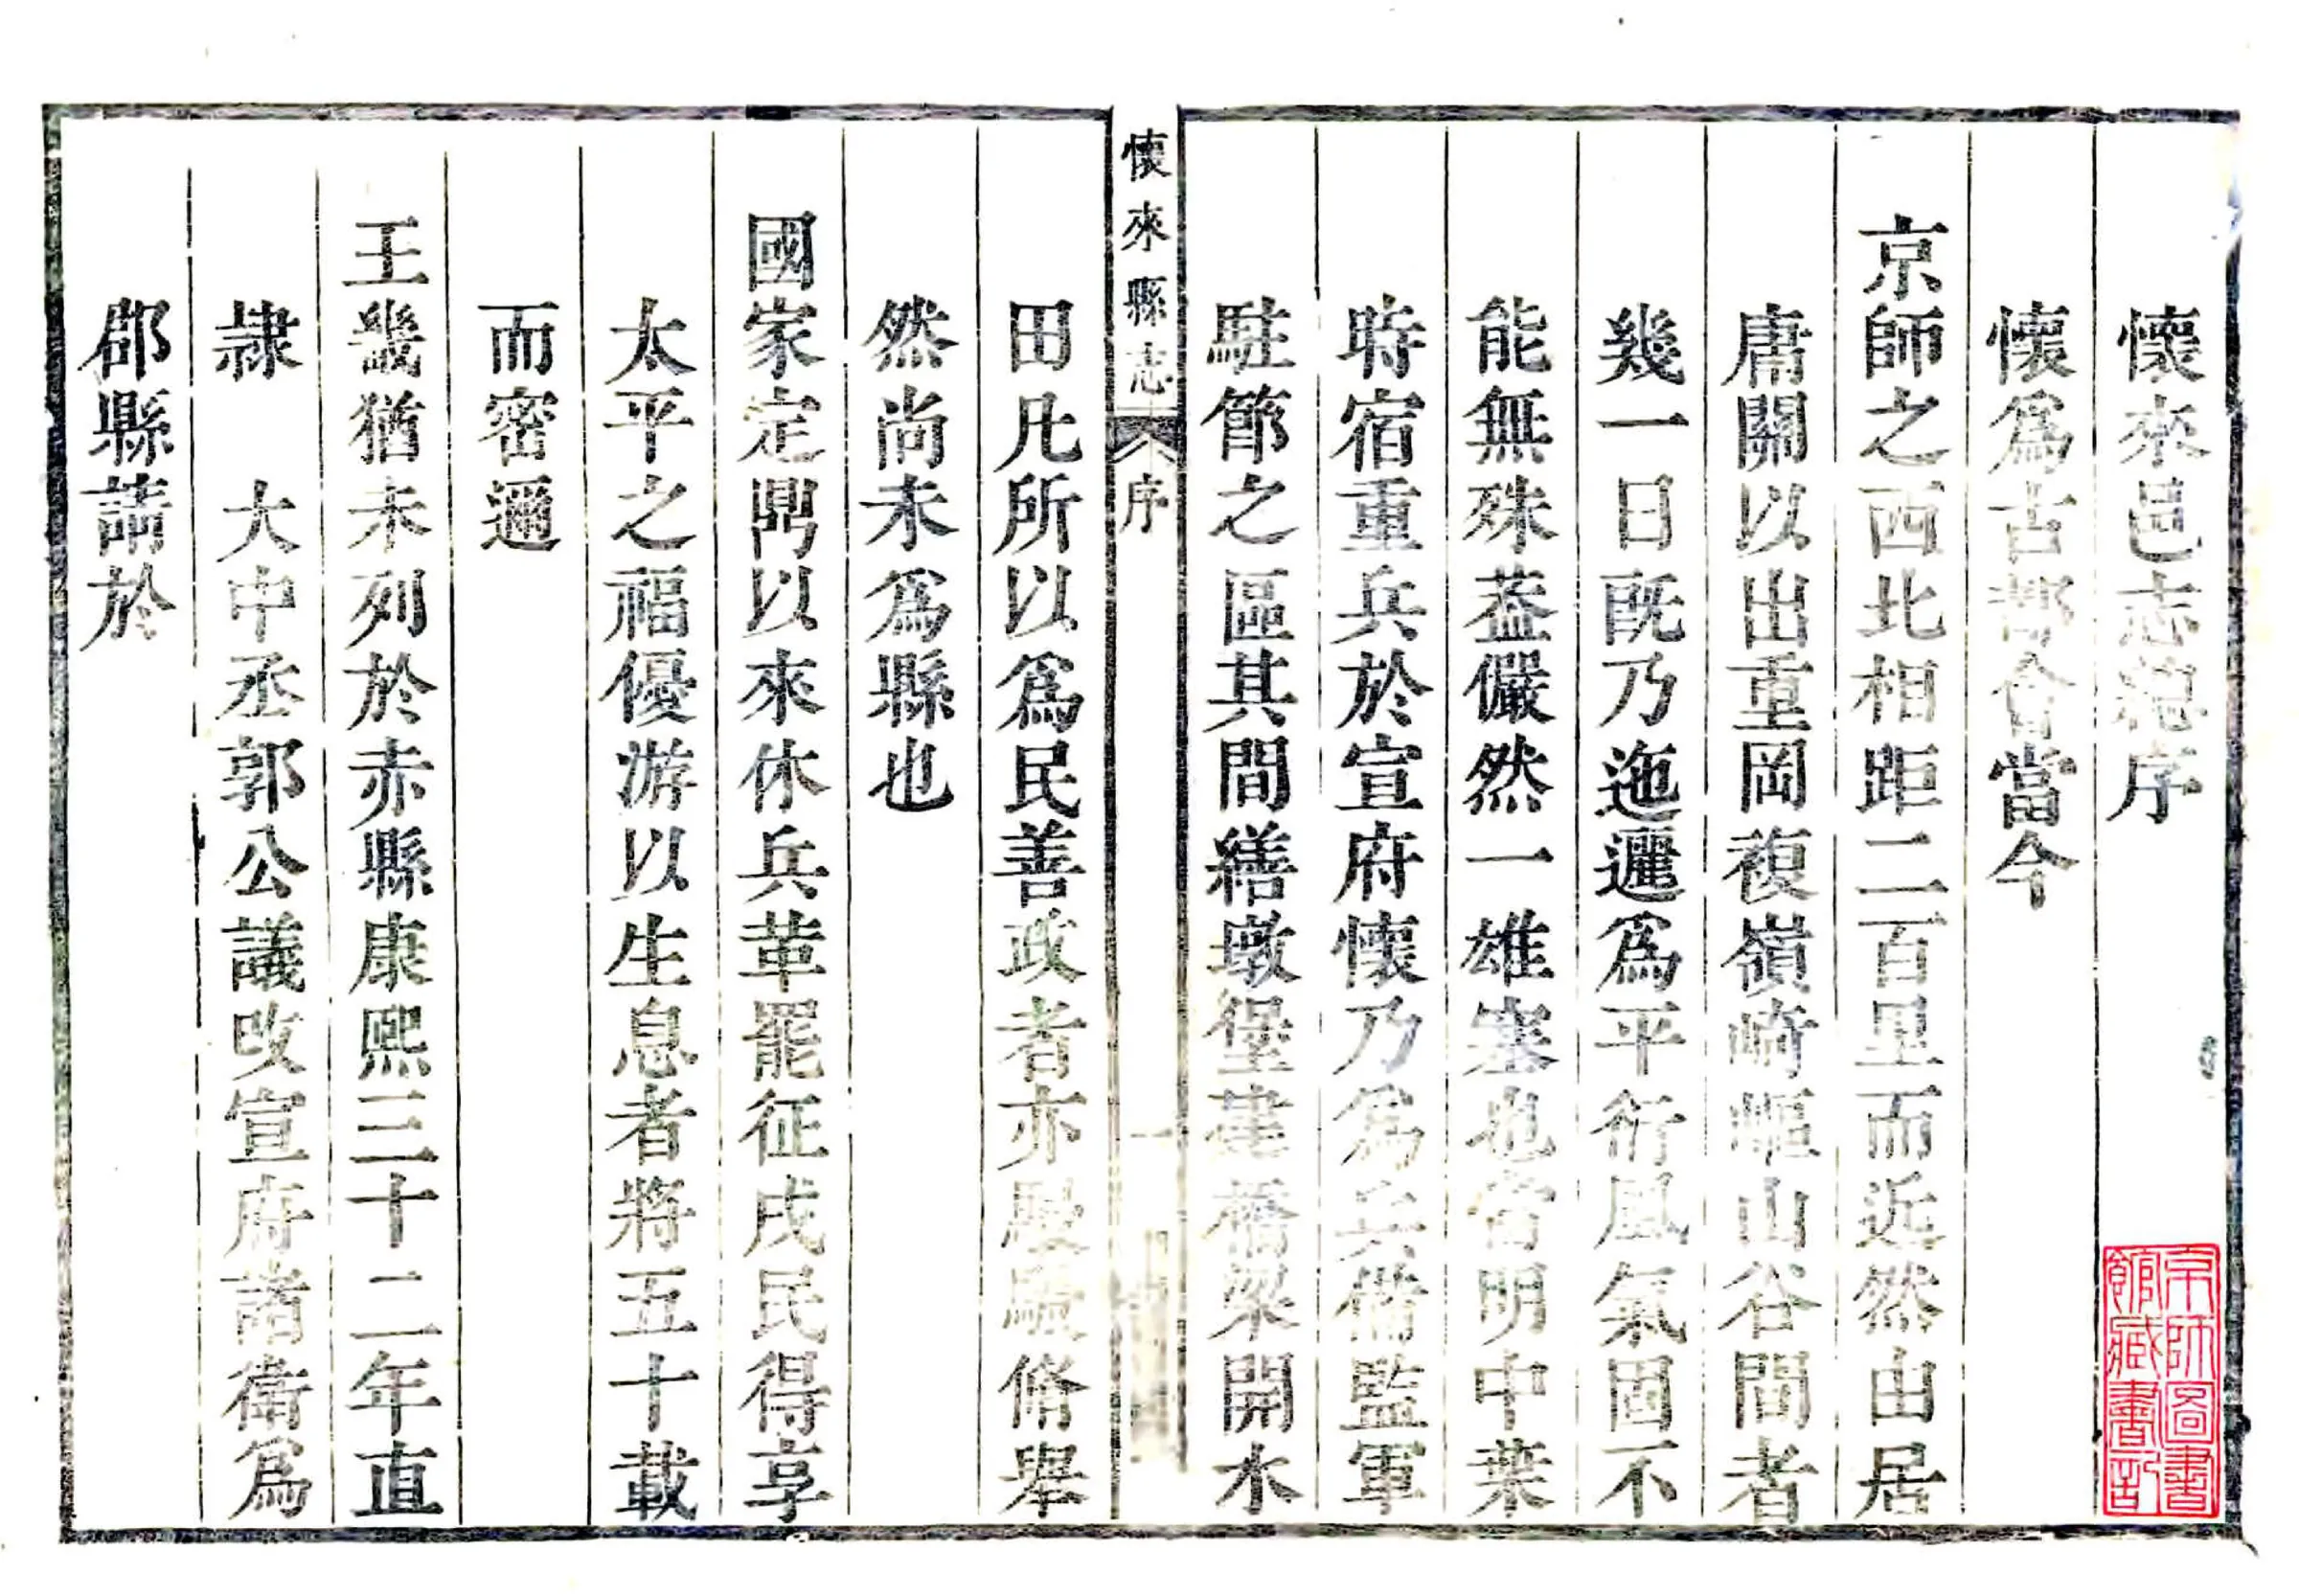 懷來邑志總序
懷爲古都會當今
京師之西北相距二百里而近然由居
庸關以出重岡複嶺崎嶇山谷間者
幾一日旣乃迤邐爲平衍風氣固不
能無殊葢儼然一雄塞也當明中葉
時宿重兵於宣府懷乃爲兵備監軍
駐節之區其間繕墩堡建橋梁開水
懷來縣志
序
一
田凡所以爲民善政者亦駸駸脩舉
然尚未爲縣也
國家定鼎以來休兵革罷征戍民得享
太平之福優游以生息者將五十載
而密邇
王畿猶未列於赤縣康熙三十二年直
隷 大中丞郭公議改宣府諸衛爲
郡縣請於
京師圖書
館藏書記